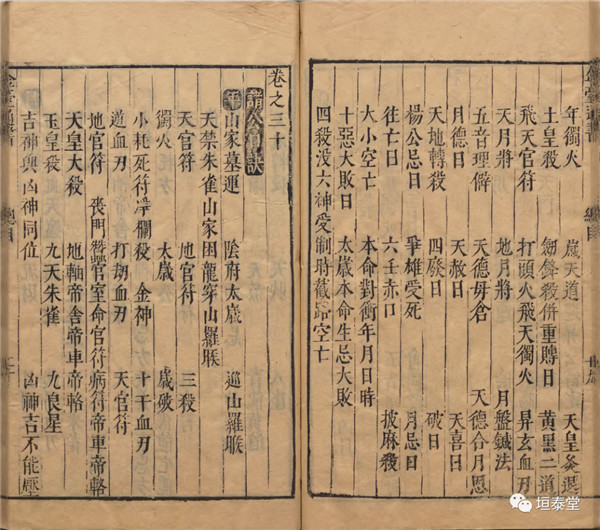 年獨火 歲天道 天皇灸退
土皇殺 殺併重日 黃黑二道
飛天官符 打頭火飛天獨火 昇玄血刃
天月將 地月將 月盤鍼法
五音理僻 天德毋倉 天德合月恩
月德日 天赦日 天喜日
天地轉殺 四廢日 破日
楊公忌日 爭雄受死 月忌日
往亡日 六壬赤口 披麻殺
大小空亡 本命對衝年月日時
十惡大敗日 太歲本命生忌大敗
四殺沒六神受制時截路空亡
總目
卷之三十
諸訣
年 山家墓運 陰府太歲 巡山羅睺
天禁朱雀山家困龍穿山羅睺
天官符 地官符 三殺
獨火 太歲 歲破
小耗死符浮欄殺 金神 十干血刃
遊血刃 打刼血刃 天官符
地官符 喪門 官室命官符病符帝車帝輅
天皇大殺 地軸帝舍帝車帝輅
玉皇殺 九天朱雀 九良星
吉神與凶神同位 凶神吉不能壓
總目
垣泰堂